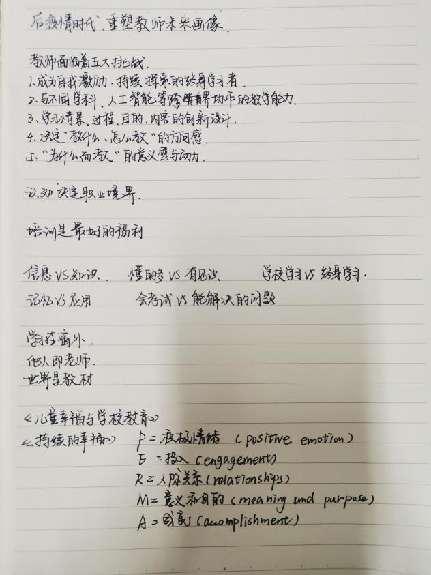 后疫情时代,重塑教师未来画像.
教师面临着五大挑战.
1.成为自我激励、持续探索的终身学习者.
2.与不同学科、人工智能等跨界协作的教学能力.
3.学习情景、过程、目的、内容的创新设计.
4.决定“教什么、怎么教”的方向感.
5、“为什么而教”的意义感与动力.
认知决定职业境界.
培训是最好的福利
信息VS知识. 懂得多 VS 有见识. 学校学习VS终身学习.
记忆VS应用 会考试VS能解决的问题
学校窗外.
他人即老师.
世界是教材
《儿童幸福与学校教育》
《持续的幸福》 P=积极情绪 (positive emotion)
E=投入 (engagement)
R=人际关系 (relationships)
M=意义和目的 (meaning und purpose)
A=成就 (accomplishment)